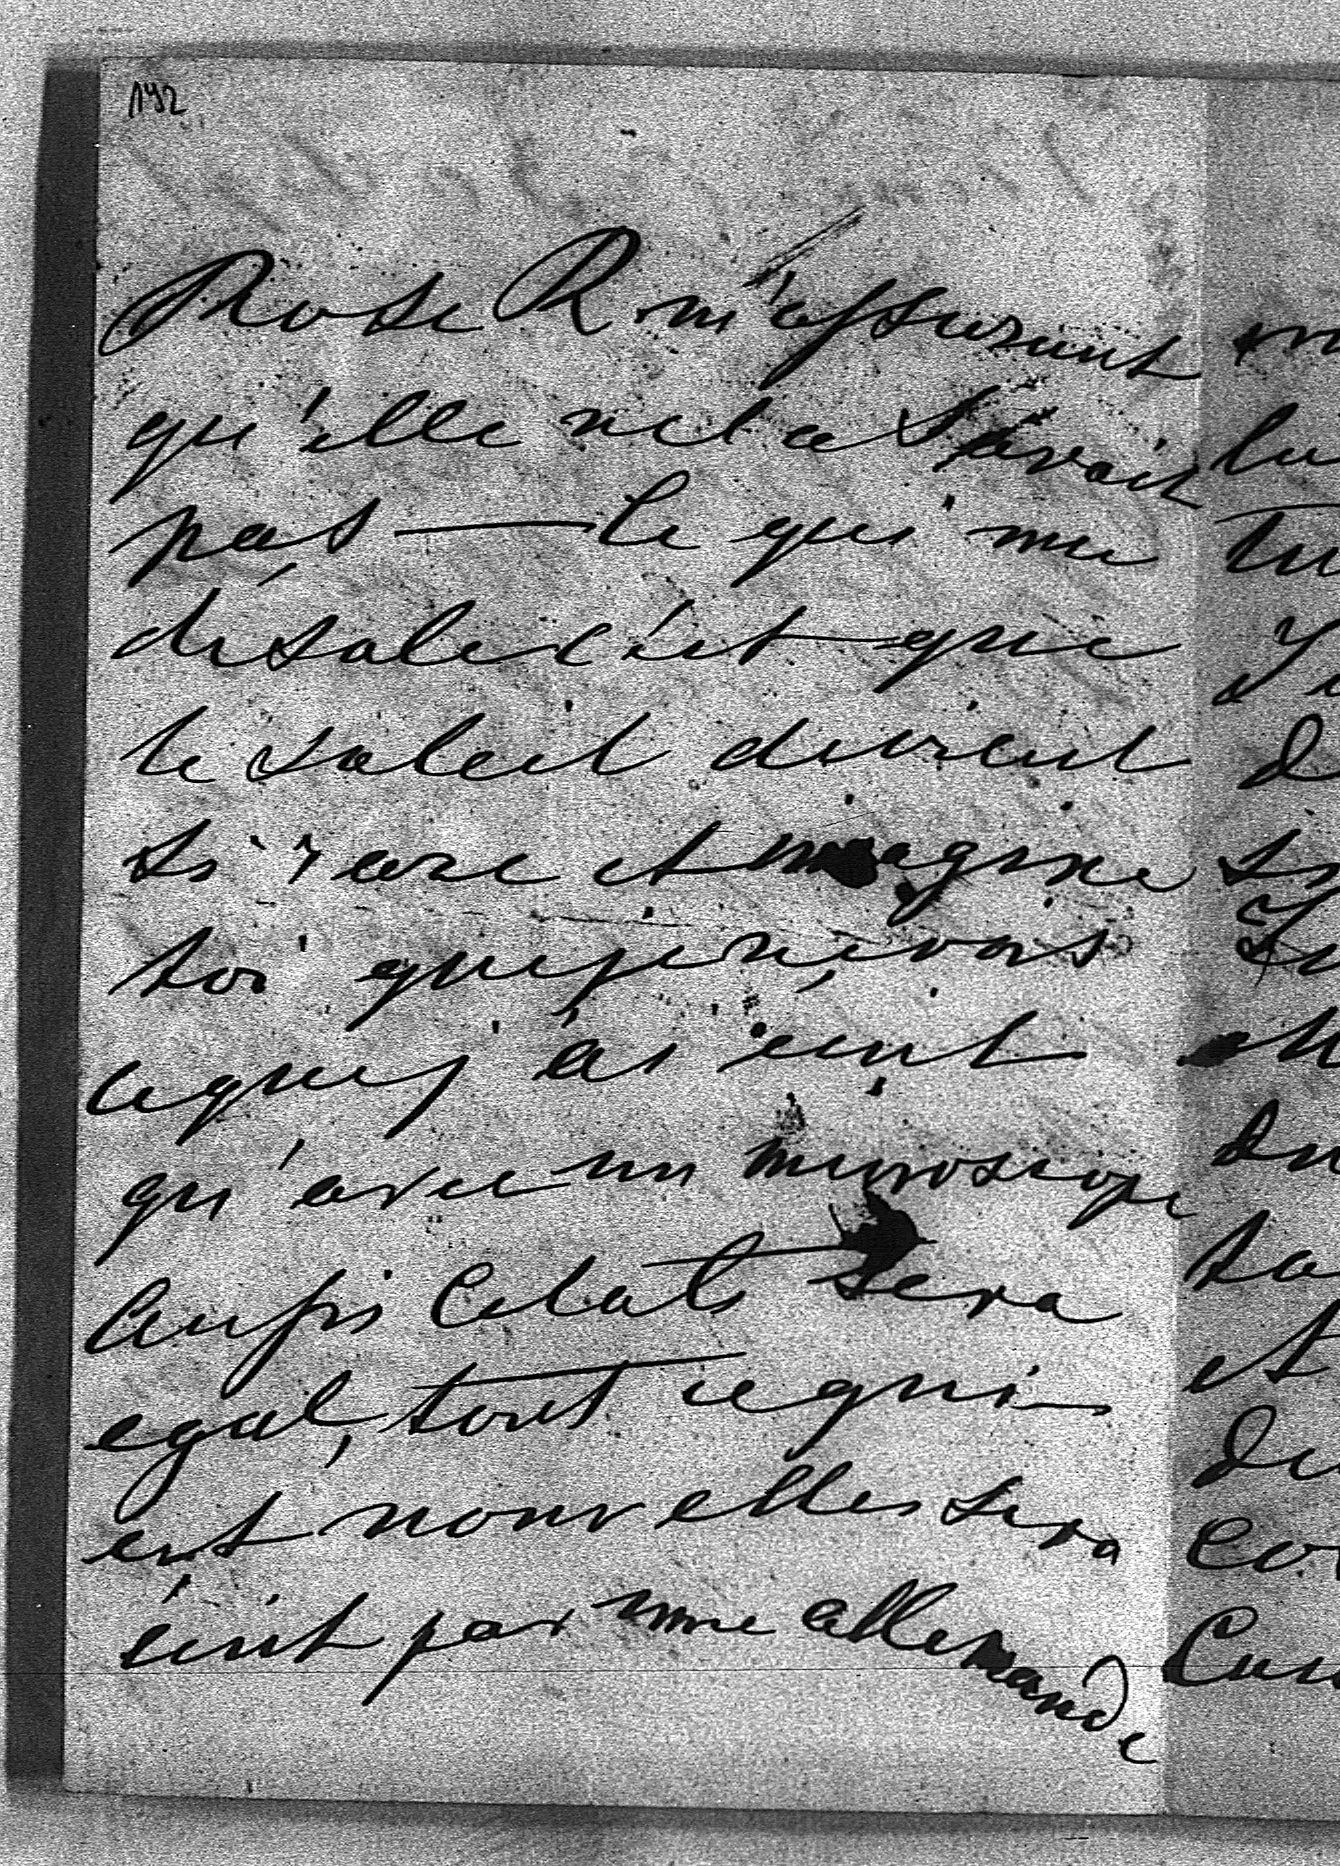 192
Rose R m'assurant
qu'elle ne la savait
pas — Ce qui me
désole c'est que
le soleil devient
si rare et imagine
toi que je ne vois
ce que j'ai écrit
qu'avec un microscope
Aussi Cela t sera
egal, tout ce qui
est nouvelles sera
écrit par une allemande